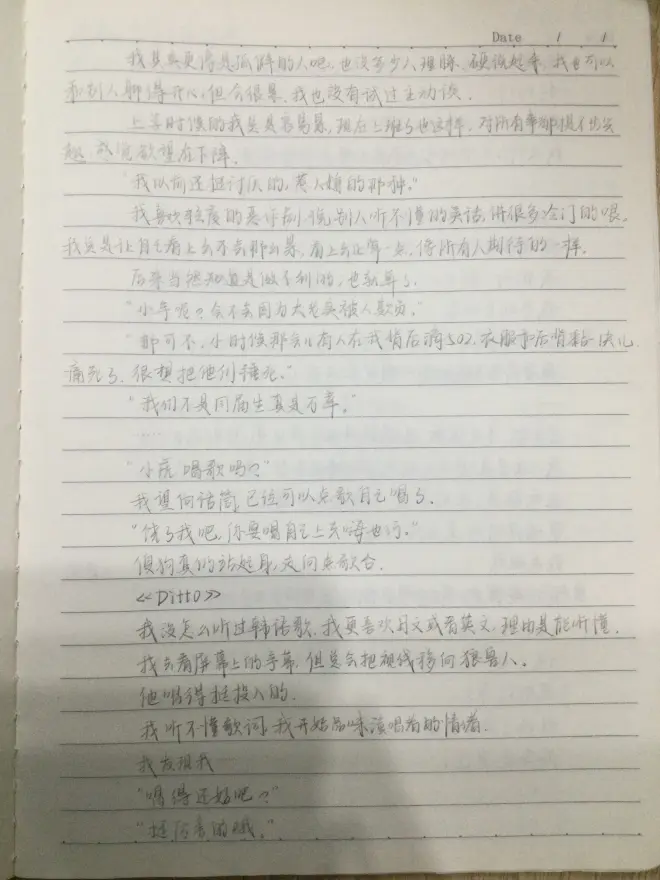 Date / /
我其实更像是孤僻的人吧,也没多少人理睬,硬体起来,我也可以
和别人聊得开心,但会很累,我也没有试过主动谈.
上学时候的我总是容易累,现在上班了也这样,对所有事都提不起兴
趣,感觉欲望在下降.
"我以前还挺讨厌的,惹人嫌的那种."
我喜欢的恶作剧,说别人听不懂的笑话,讲很多冷门的哏,
我总是让自己看上去不去那么累,看上去正常一点,像所有人期待的一样.
后来当然知道是做不到的,也就算了.
"小年呢?会不会因为太老实被人欺负."
"那可不,小时候那会儿有人在我背后滴502,衣服和后背黏一块儿,
痛死了,很想把他们捶死."
"我们不是同届生真是万幸."
……
"小虎唱歌吗?"
我望向话筒,已经可以点歌自己唱了.
"饶了我吧,你要唱自己上去唱也行."
狼狗真的站起身,走向点歌台.
《Ditto》
我没怎么听过韩语歌,我更喜欢日文或者英文,理由是能听懂.
我去看屏幕上的字幕,但总会把视线移向狼兽人.
他唱得挺投入的.
我听不懂歌词,我开始品味演唱者的情绪.
我发现我
"唱得还好吧?"
"挺厉害的哦."